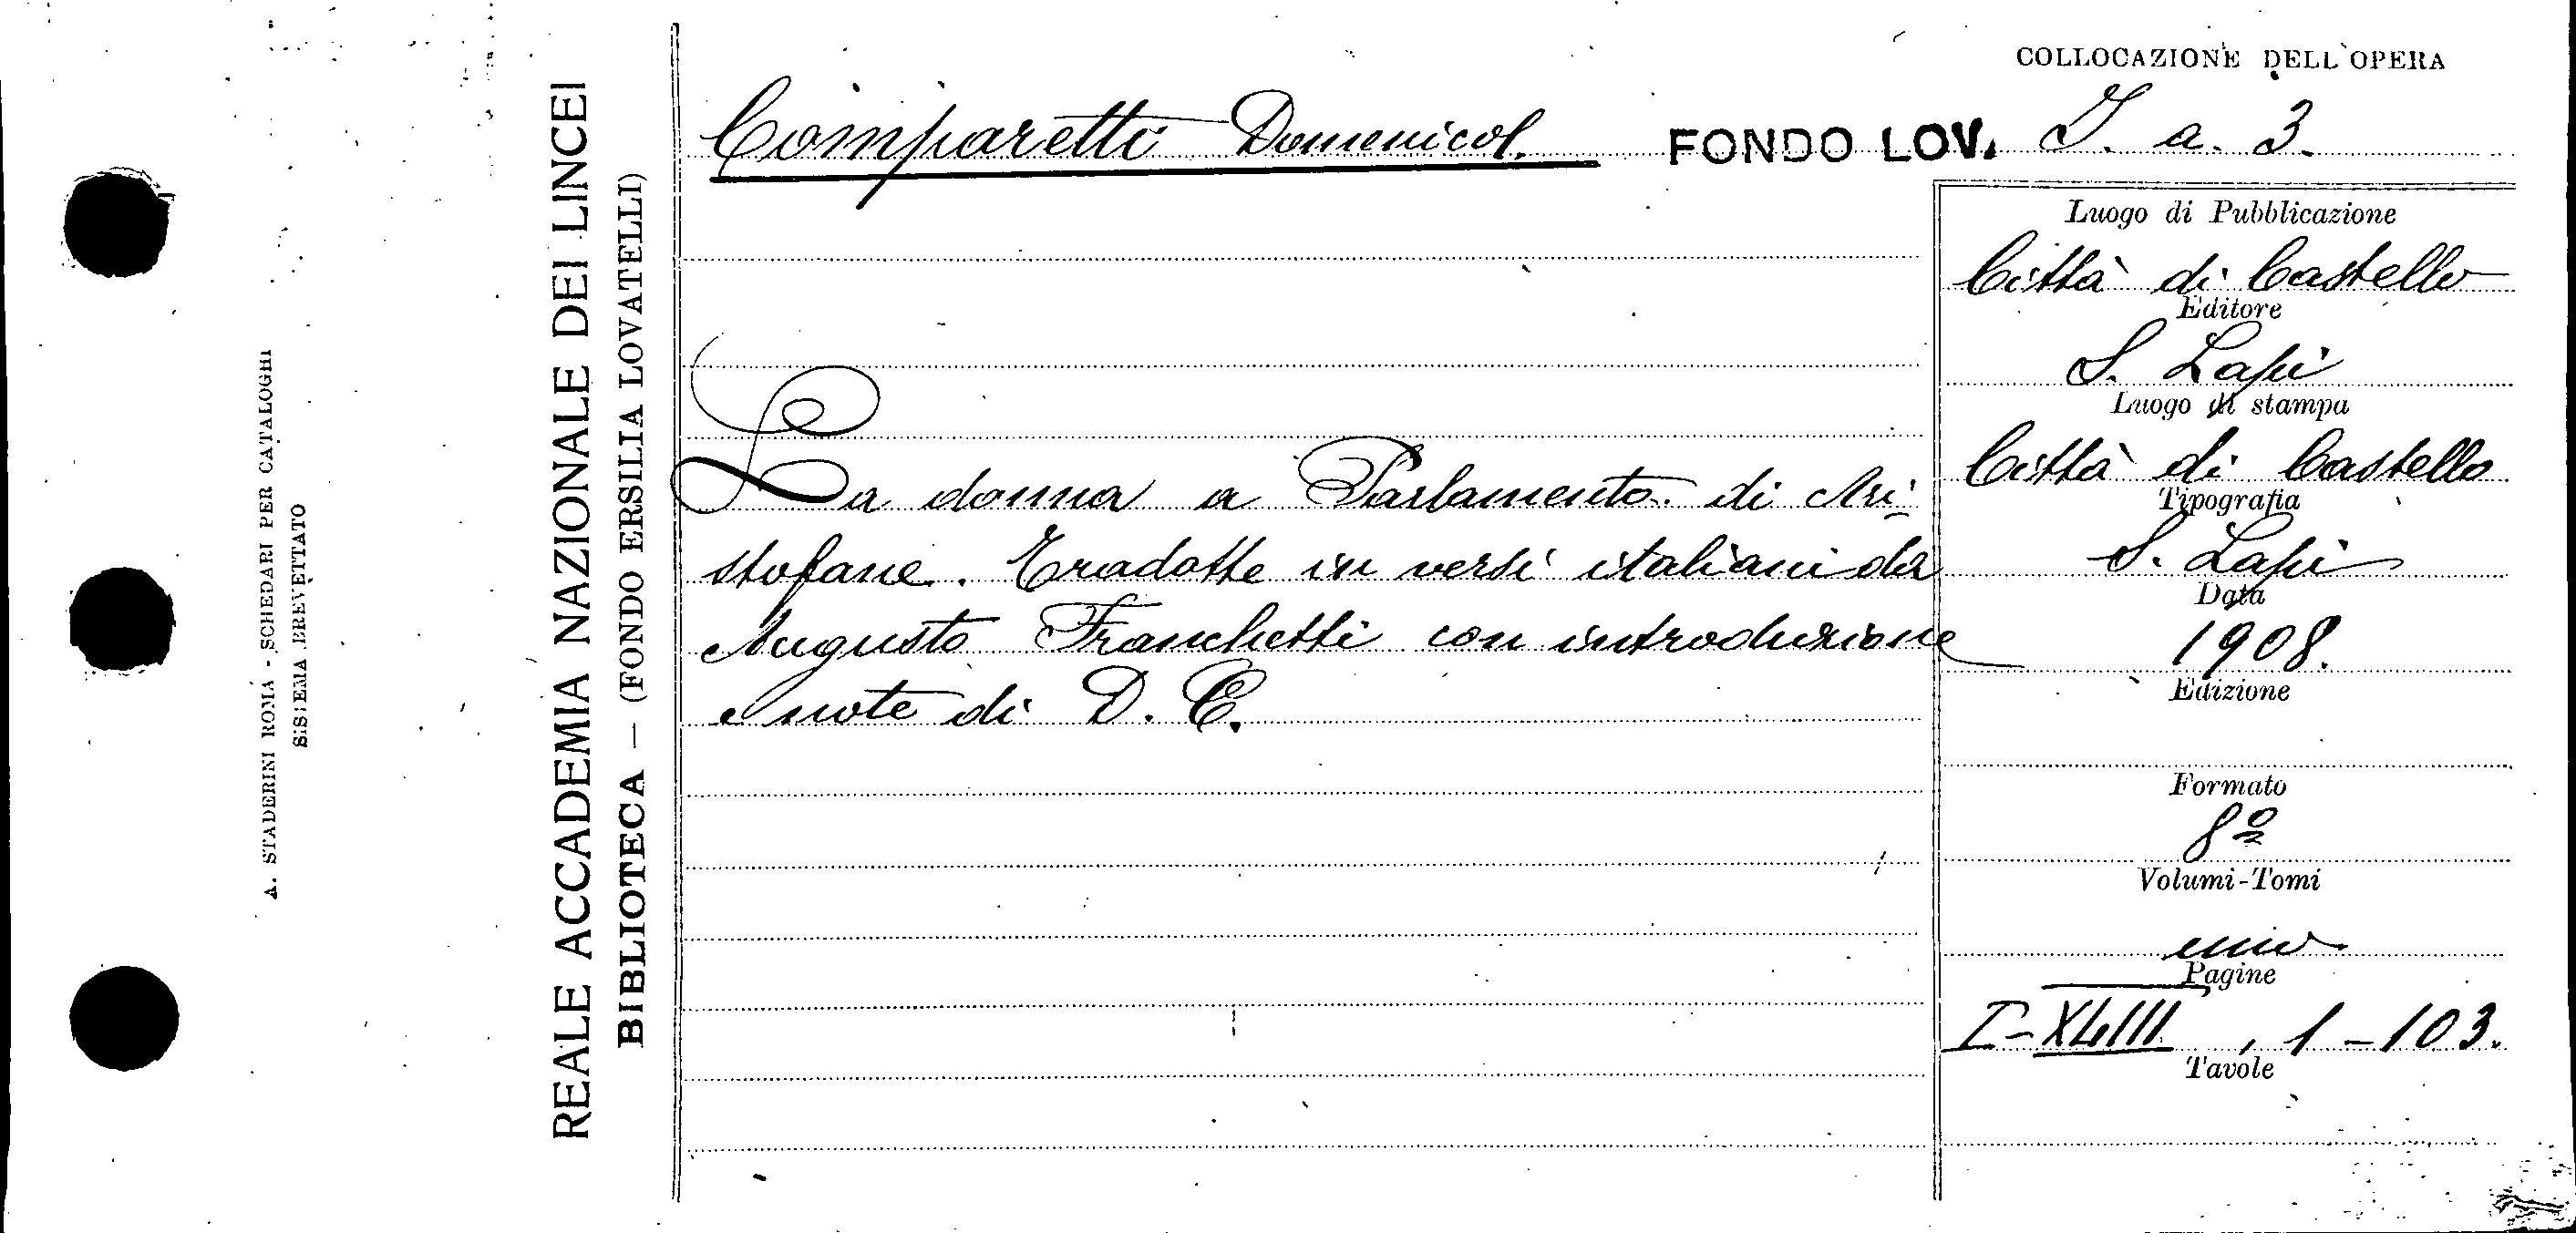 COLLOCAZIONE DELL'OPERA
Comparetti Domenico. FONDO LOV. I. a. 3.
Luogo di Pubblicazione
Città di Castello
Editore
S. Lapi
Luogo di stampa
Città di Castello
Tipografia
S. Lapi
Data
1908.
Edizione
Formato
8º
Volumi-Tomi
uno
Pagine
I-XLIII, 1-103.
Tavole
La donna a Parlamento di Ari-
stofane. Tradotte in versi italiani da
Augusto Franchetti con introduzione
e note di D. C.
REALE ACCADEMIA NAZIONALE DEI LINCEI
BIBLIOTECA — (FONDO ERSILIA LOVATELLI)
A. STADERINI ROMA - SCHEDARI PER CATALOGHI
SISTEMA BREVETTATO